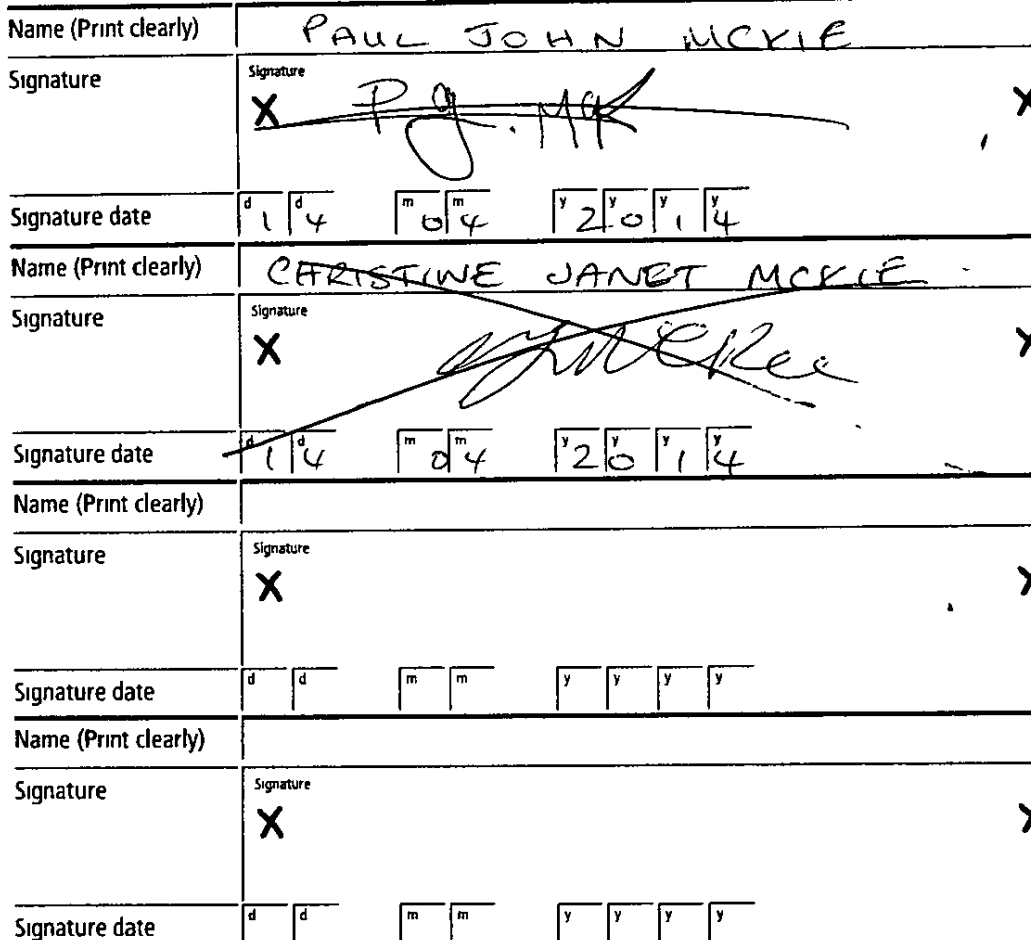 Name (Print clearly) PAUL JOHN MCKIE
Signature Signature
X P.J. McK X
Signature date d 1 d 4 m 0 m 4 y 2 y 0 y 1 y 4
Name (Print clearly) CHRISTINE JANET MCKIE
Signature Signature
X CJMcKee X
Signature date d 1 d 4 m 0 m 4 y 2 y 0 y 1 y 4
Name (Print clearly)
Signature Signature
X X
Signature date d d m m y y y y
Name (Print clearly)
Signature Signature
X X
Signature date d d m m y y y y